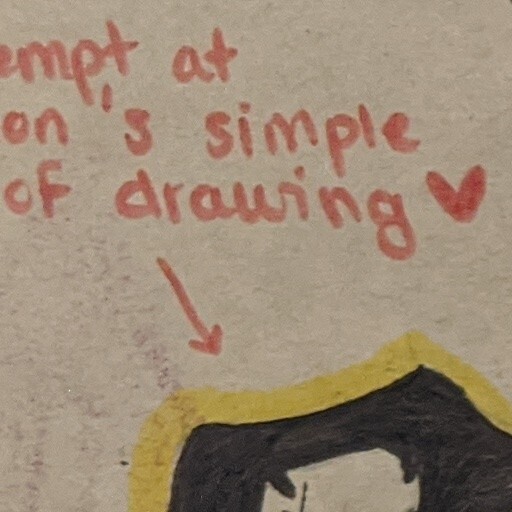 empt at
on's simple
of drawing ♥